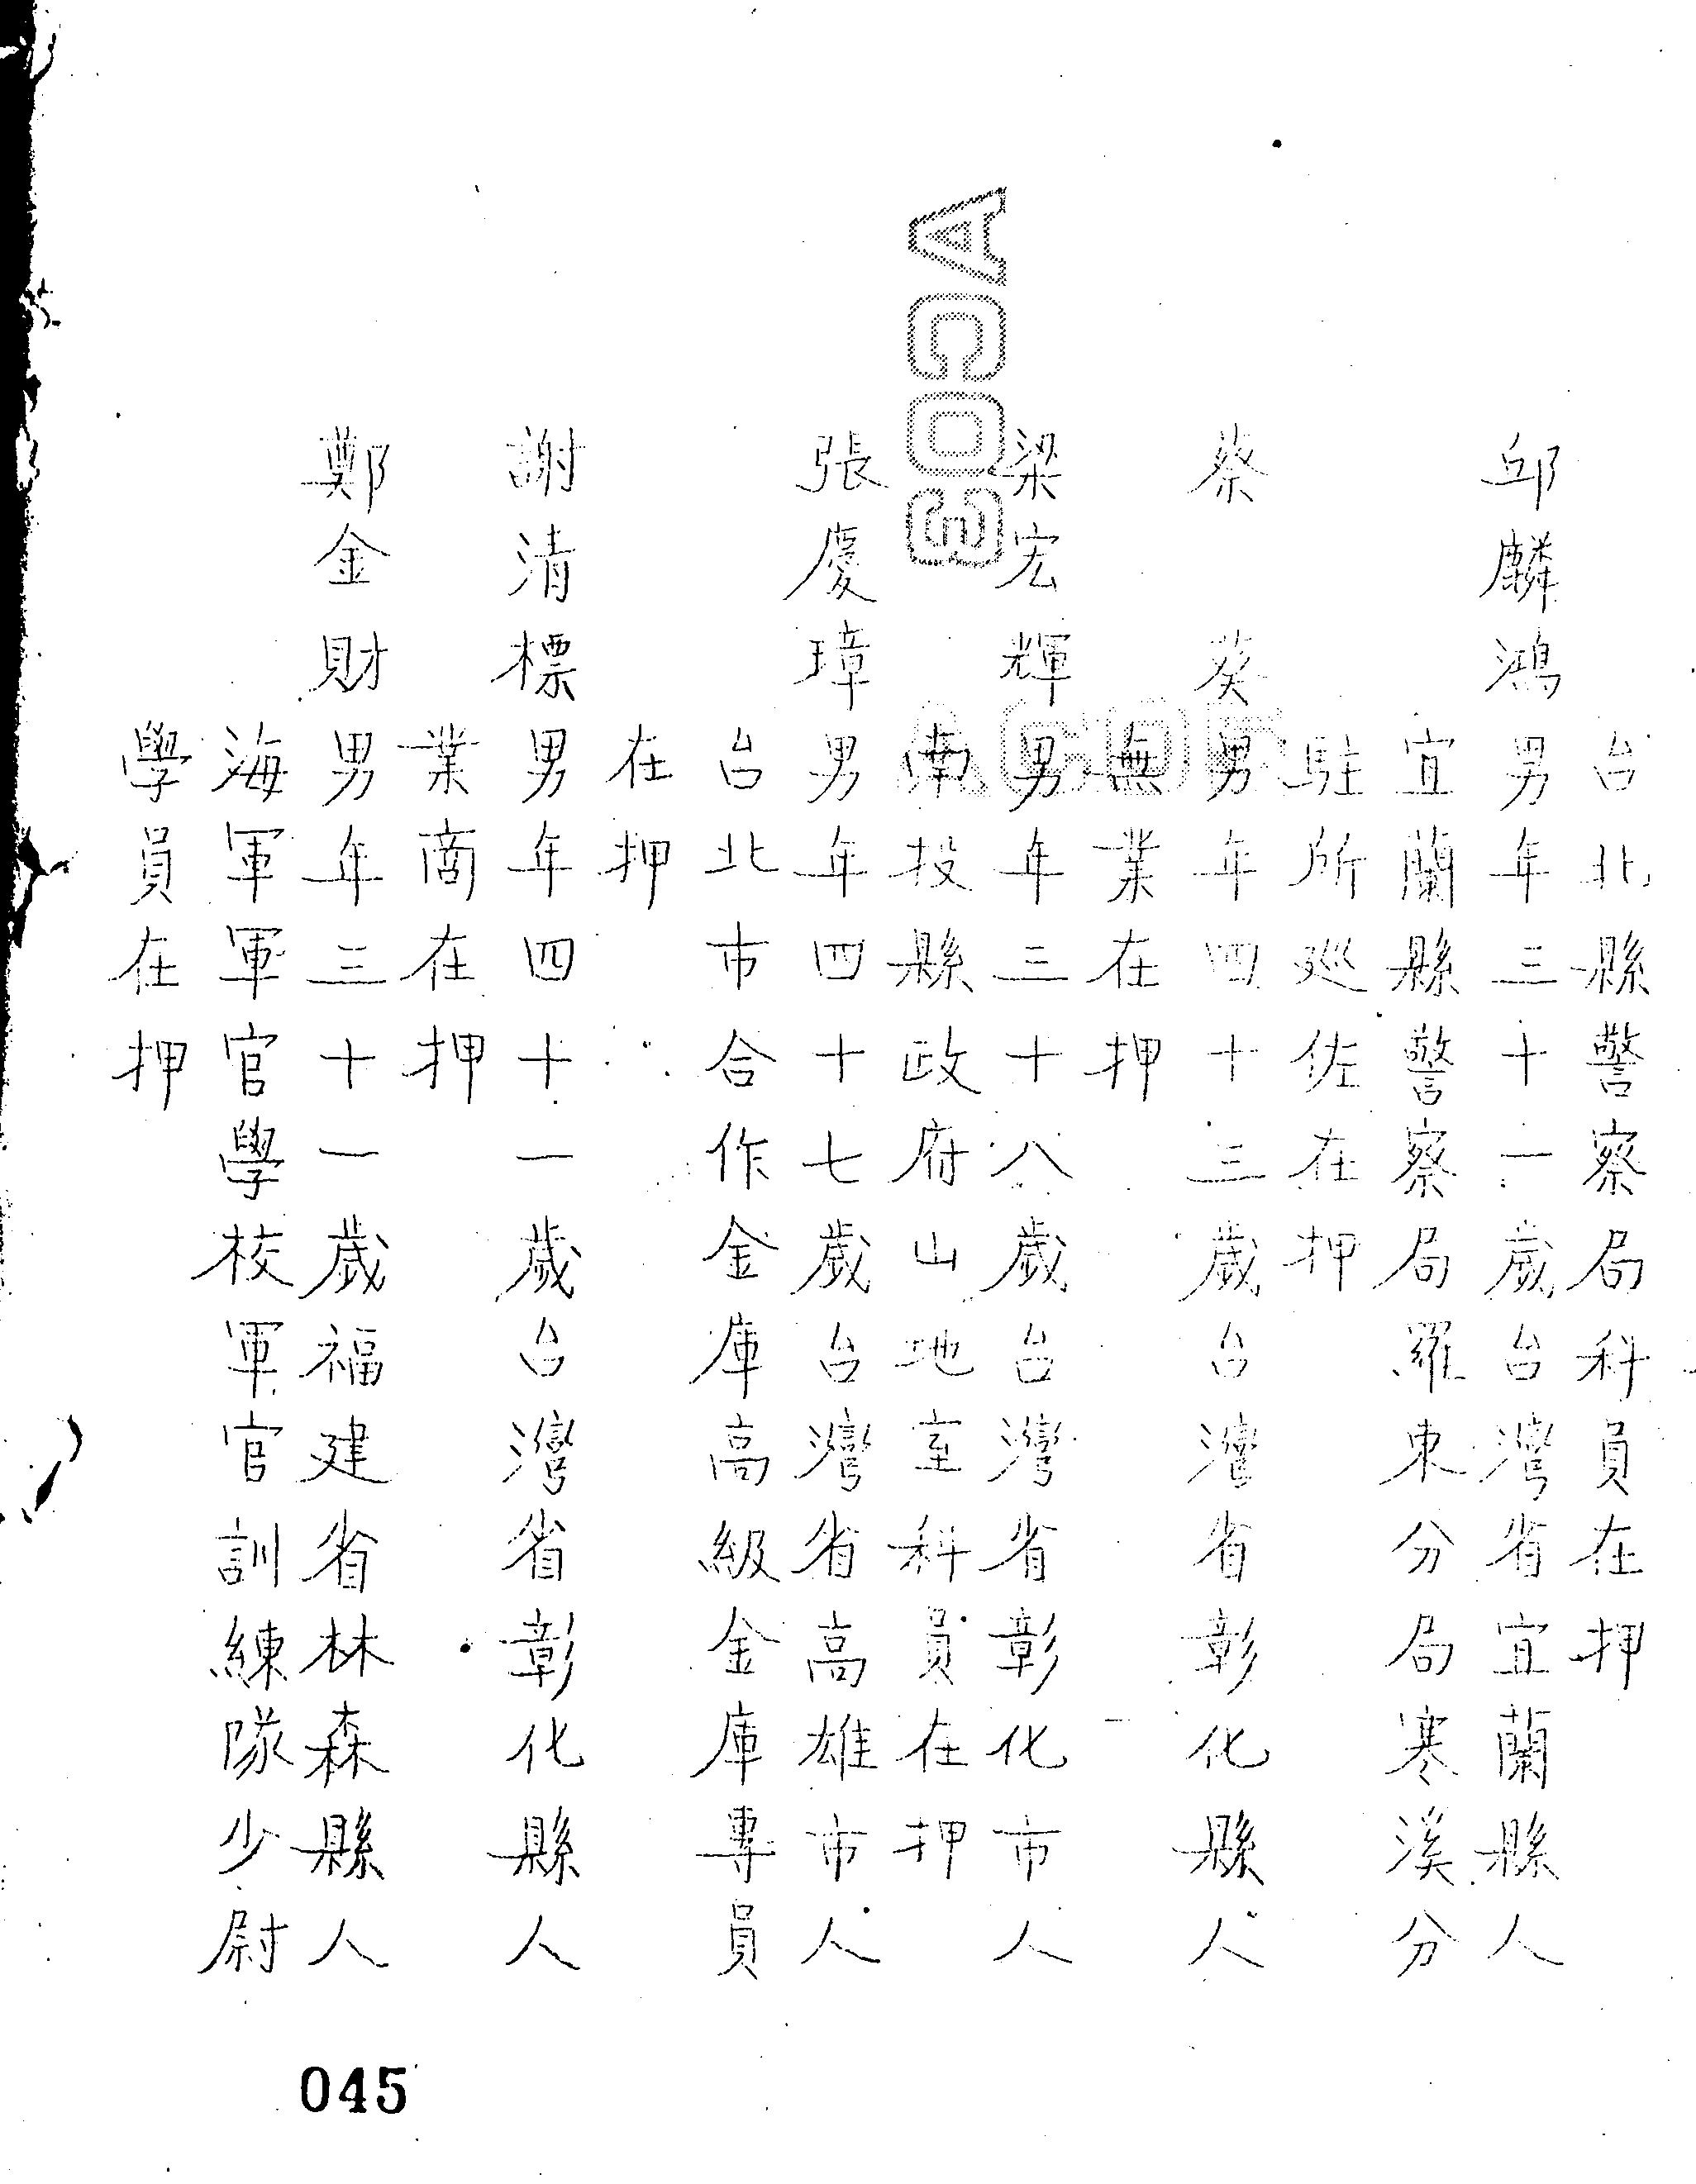 台北縣警察局科員在押
邱麟鴻男年三十一歲台灣省宜蘭縣人
宜蘭縣警察局羅東分局寒溪分
駐所巡佐在押
蔡葵男年四十三歲台灣省彰化縣人
無業在押
梁宏輝男年三十八歲台灣省彰化市人
南投縣政府山地室科員在押
張慶璋男年四十七歲台灣省高雄市人
台北市合作金庫高級金庫專員
在押
謝清標男年四十一歲台灣省彰化縣人
業商在押
鄭金財男年三十一歲福建省林森縣人
海軍軍官學校軍官訓練隊少尉
學員在押
045